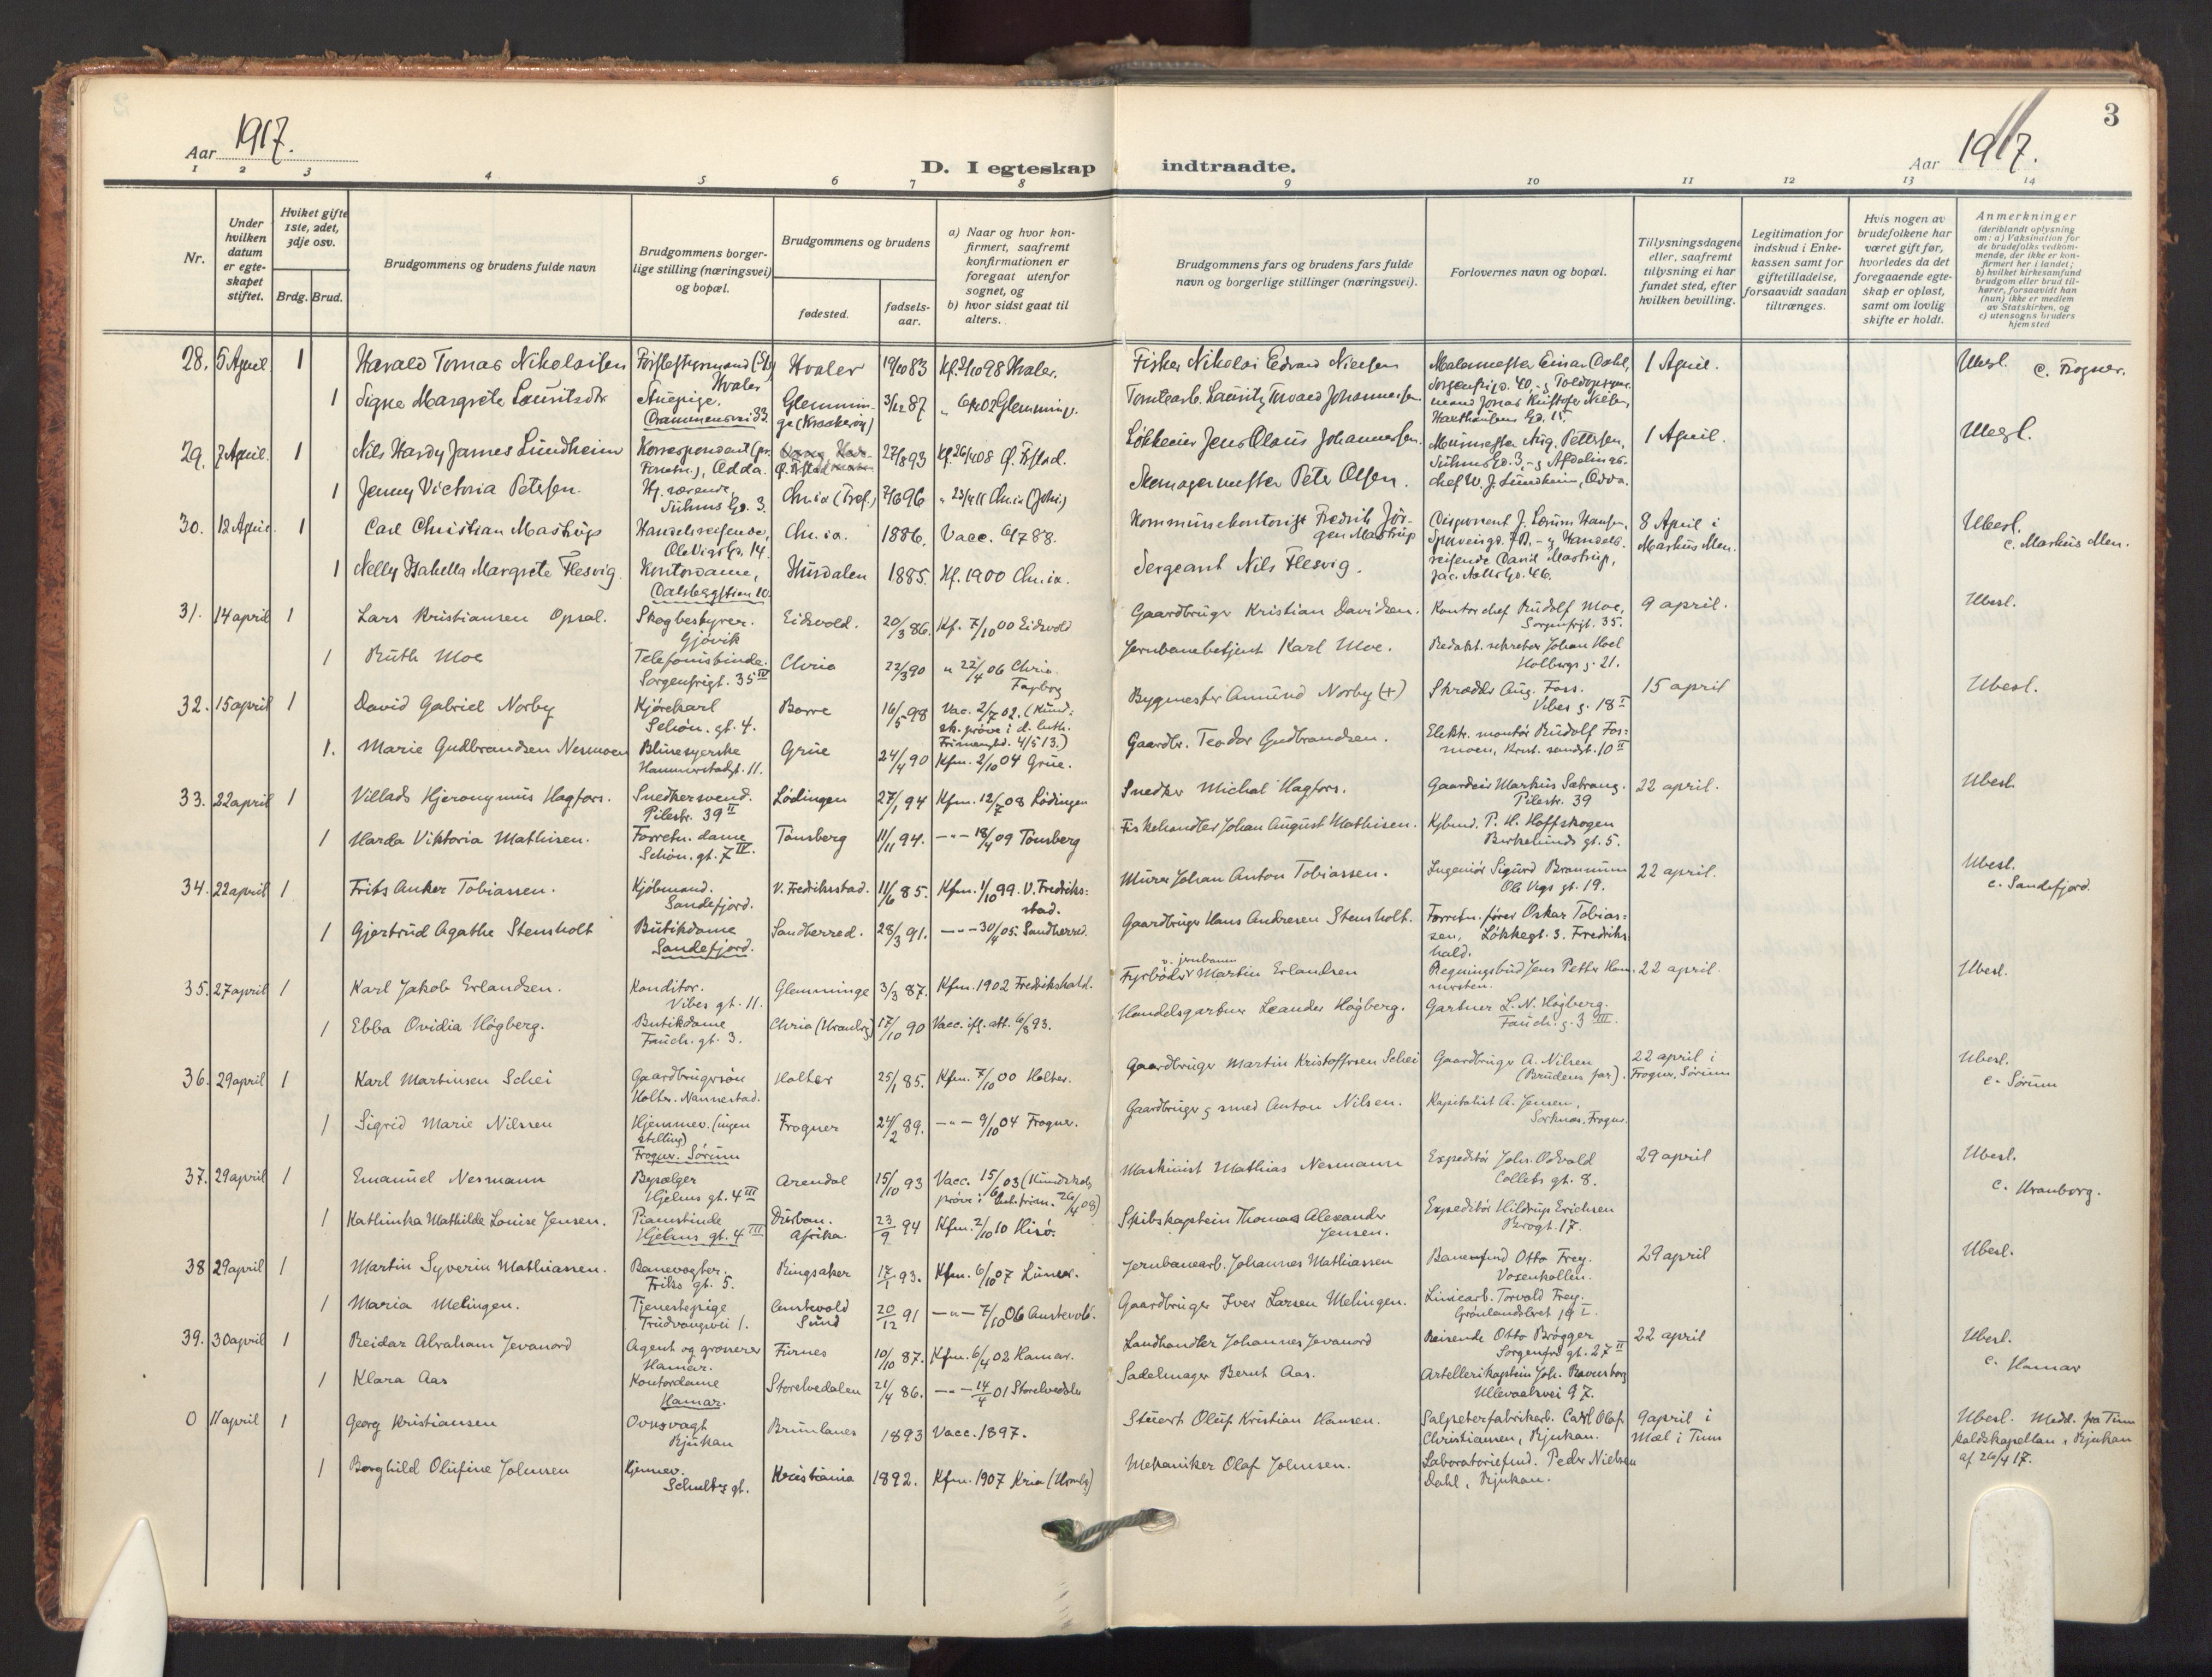 3
Aar 1917.
D. I egteskap indtraadte.
Aar 1917.
1 2 3 4 5 6 7 8 9 10 11 12 13 14
Nr.
Under hvilken datum er egteskapet stiftet.
Hviket gifte 1ste, 2det, 3dje osv.
Brdg. Brud.
Brudgommens og brudens fulde navn
Brudgommens borgerlige stilling (næringsvei) og bopæl.
Brudgommens og brudens
fødested.
fødselsaar.
a) Naar og hvor konfirmert, saafremt konfirmationen er foregaat utenfor sognet, og
b) hvor sidst gaat til alters.
Brudgommens fars og brudens fars fulde navn og borgerlige stillinger (næringsvei).
Forlovernes navn og bopæl.
Tillysningsdagene eller, saafremt tillysning ei har fundet sted, efter hvilken bevilling.
Legitimation for indskud i Enkekassen samt for giftetilladelse, forsaavidt saadan tiltrænges.
Hvis nogen av brudefolkene har været gift før, hvorledes da det foregaaende egteskap er opløst, samt om lovlig skifte er holdt.
Anmerkninger (deriblandt oplysning om: a) Vaksination for de brudefolks vedkommende, der ikke er konfirmert her i landet; b) hvilket kirkesamfund brudgom eller brud tilhører, forsaavidt han (hun) ikke er medlem av Statskirken, og c) utensogns bruders hjemsted
28. 5 April 1 Harald Tomas Nikolaisen Hvaler 19/10 83 Kf. 2/10 98 Hvaler. Fisker Nikolai Edvard Nielsen Malermester Einar Dahl, 1 April. Ubesl. c. Frogner.
1 Signe Margrete Lauritsdtr Stuepige. Drammensvei 33. Glemminge (Krackerøy) 3/12 87 " Glemminge. Tomtearb. Lauritz Johannesen
29. 7 April. 1 Nils Hardy James Lundheim Korrespondent Odda. 27/8 93 Kf. 26/4 08 Ø. Frstad. Løkkeeier Jens Olaus Johannesen. Murmester Aug. Pettersen, Suhms Gd. 3, - og Afdelingschef W. J. Lundheim, Odda. 1 April. Ubesl.
1 Jenny Victoria Petersen. Hj. værende, Suhms Gd. 3. Chr.ia (Tref.) 7/6 96 " 23/4 11 Chr.ia (Joh.) Skomagermester Peter Olsen.
30. 12 April 1 Carl Christian Mastrup Handelsreisende, Ole Vigs Gd. 14. Chr.ia. 1886. Vacc. 6/7 88. Kommunekontorist Fredrik Jørgen Mastrup Disponent J. Lorum Hansen, - og Handelsreisende David Mastrup, Jac. Aalls Gd. 46. 8 April i Markus Men. Ubesl. c. Markus Men.
1 Nelly Isabella Margrete Flesvig Kontordame, Dalsbergstien 10. Hurdalen 1885. Kf. 1900 Chr.ia. Sergeant Nils Flesvig.
31. 14 april 1 Lars Kristiansen Opsal. Skogbestyrer. Gjøvik Eidsvold. 20/3 86. Kf. 7/10 00 Eidsvold Gaardbruger Kristian Davidsen. Kontorchef Rudolf Moe, Sorgenfrigt. 35. 9 april. Ubesl.
1 Ruth Moe Telefonistinde. Sorgenfrigt. 35 IV Chria 22/3 90 " 22/4 06 Chria. Fagerborg Jernbanebetjent Karl Moe. Redakt. sekretær Johan Hoel Holbergs g. 21.
32. 15 april 1 David Gabriel Norby Kjørekarl Schøn. gt. 4. Borre 16/5 98 Vac. 2/7 02. (Kundsk. prøve i d. luth. Frimenighd. 4/5 13.) Bygmester Amund Norby (+) Skrædder Aug. Foss. Vibes g. 18 I 15 april Ubesl.
1. Marie Gudbrandsen Nesmoen Blusesyerske Hammerstadgt. 11. Grue 24/4 90 Kfm. 2/10 04 Grue. Gaardbr. Teodor Gudbrandsen. Elektr. montør Rudolf Fosmoen, Krist. sandgt. 10 II
33. 22 april 1 Villads Hjeronymus Hagfors. Snedkersvend. Pilestr. 39 II Lødingen 27/1 94 Kfm. 12/7 08 Lødingen Snedker Michal Hagfors. Gaardeier Markus Satrang. Pilestr. 39 22 april. Ubesl.
1 Harda Viktoria Mathisen. Forretn. dame Schøn. gt. 7 IV. Tønsberg 11/11 94. -"- 18/4 09 Tønsberg Fiskehandler Johan August Mathisen. Kjbmd. P. H. Hoffskogen Birkelunds gt. 5.
34. 22 april 1 Frits Anker Tobiassen. Kjøbmand. Sandefjord. V. Fredriksstad. 11/6 85. Kfm. 1/10 99. V. Fredriksstad. Murer Johan Anton Tobiassen. Ingeniør Sigurd Bramnum Ole Vigs gt. 19. 22 april. Ubesl. c. Sandefjord.
1 Gjertrud Agathe Stensholt Butikdame Sandefjord. Sandherred. 28/3 91. -"- 30/4 05. Sandherred. Gaardbruger Hans Andresen Stensholt. Forretn. fører Oskar Tobiassen, Løkkegt. 3. Fredrikshald.
35. 27 april 1 Karl Jakob Erlandsen. Konditor. Vibes gt. 11. Glemminge 3/3 87. Kfm. 1902 Fredrikshald. Fyrbøder v. jernbanen Martin Erlandsen Regningsbud Jens Petter 22 april. Ubesl.
1 Ebba Ovidia Høgberg. Butikdame Fauch. gt. 3. Chria (Uranbrg) 17/10 90 Vacc. ifl. att. 6/8 93. Handelsgartner Leander Høgberg. Gartner L. N. Høgberg. Fauch. g. 3 III.
36. 29 april 1 Karl Martinsen Schei Gaardbrugersøn Holter. Nannestad. Holter 25/1 85. Kfm. 7/10 00 Holter. Gaardbruger Martin Kristoffersen Schei Gaardbruger A. Nilsen (Brudens far). 22 april i Frogner. Sørum Ubesl. c. Sørum
1 Sigrid Marie Nilssen Hjemmev. (ingen stilling) Frogner. Sørum Frogner 24/2 89. -"- 9/10 04 Frogner. Gaardbruger g smed Anton Nilsen. Kapitalist A. Jensen, Sorknæs. Frogner.
37. 29 april 1 Emanuel Nesmann Bypælger Hjelms gt. 4 III Arendal 15/10 93 Vacc. 15/6 03 (Kundskabsprøve i Luth. frim. 26/4 08) Maskinist Mathias Nesmann Expeditør Johs. Odvald Colletts gt. 8. 29 april Ubesl. c. Uranborg.
1 Kathinka Mathilde Louise Jensen. Pianistinde Hjelms gt. 4 III Durban. Afrika. 23/9 94 Kfm. 2/10 10 Hisø. Skibskaptein Thomas Alexander Jensen. Expeditør Hildrup Erichsen Brogt. 17.
38 29 april 1 Martin Syverin Mathiassen. Banevogter. Friks gt. 5. Ringsaker 17/1 93. Kfm. 6/10 07 Lunner. Jernbanearb. Johannes Mathiassen Baneform. Otto Frey. Voxenkollen. 29 april Ubesl.
1 Maria Melingen. Tjenestepige Trudvangvei 1. Austevold Sund 20/12 91 -"- 7/10 06 Austevold. Gaardbruger Iver Larsen Melingen. Liniearb. Torvald Frey. Grønlandsleret 19 I.
39. 30 april 1 Reidar Abraham Jevanord Agent og grosserer Hamar. Furnes 10/10 87. Kfm. 6/4 02 Hamar. Landhandler Johannes Jevanord Reisende Otto Brøgger Sorgenfri gt. 27 II 22 april Ubesl. c. Hamar
1 Klara Aas Kontordame Hamar. Storelvedalen 21/4 86. -"- 14/4 01 Storelvedalen Sadelmager Bernt Aas. Artellerikaptein Joh. Ravensborg Ullevaalsvei 97.
0 11 april 1 Georg Kristiansen Ovnsvagt Rjukan Brunlanes 1893 Vacc. 1897. Stuert Oluf Kristian Hansen. Salpeterfabrikarb. Carl Olaf Christiansen, Rjukan. 9 april i Mæl i Tinn Ubesl. Medd. fra Tinn kaldskapellan i Rjukan af 26/4 17.
1 Borghild Olufine Johnsen Hjemmev. Schultz gt. Kristiania 1892. Kfm. 1907 Kria (Uranb.) Mekaniker Olaf Johnsen. Laboratorieform. Peder Nielsen Dahl, Rjukan.